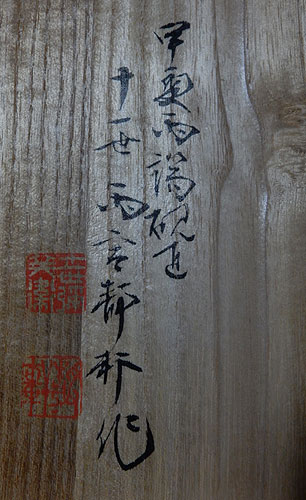 甲斐雨端硯匠
十一世雨宮静軒作